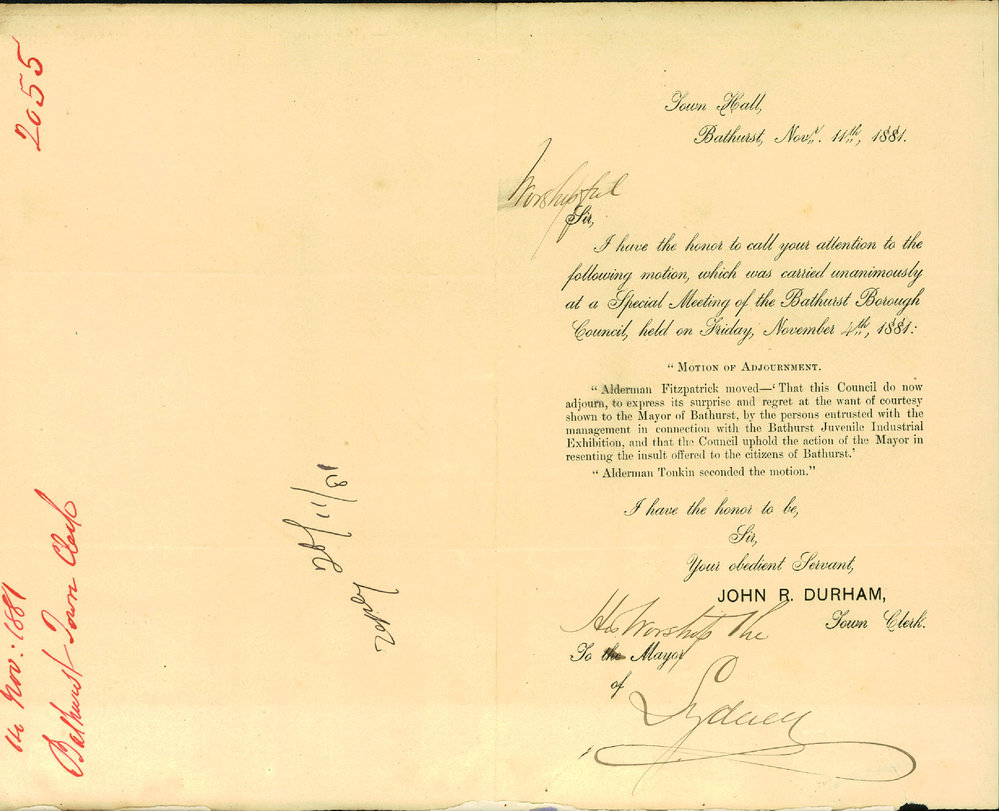 2055
14 Nov: 1881
Bathurst Town Clerk
28/11/81
Town Hall,
Bathurst, Novr. 14th, 1881.
Worshipful
Sir,
I have the honor to call your attention to the
following motion, which was carried unanimously
at a Special Meeting of the Bathurst Borough
Council, held on Friday, November 4th, 1881:
"Motion of Adjournment.
"Alderman Fitzpatrick moved—'That this Council do now
adjourn, to express its surprise and regret at the want of courtesy
shown to the Mayor of Bathurst, by the persons entrusted with the
management in connection with the Bathurst Juvenile Industrial
Exhibition, and that the Council uphold the action of the Mayor in
resenting the insult offered to the citizens of Bathurst.'
"Alderman Tonkin seconded the motion."
I have the honor to be,
Sir,
Your obedient Servant,
JOHN R. DURHAM,
Town Clerk.
His Worship The
To the Mayor
of
Sydney